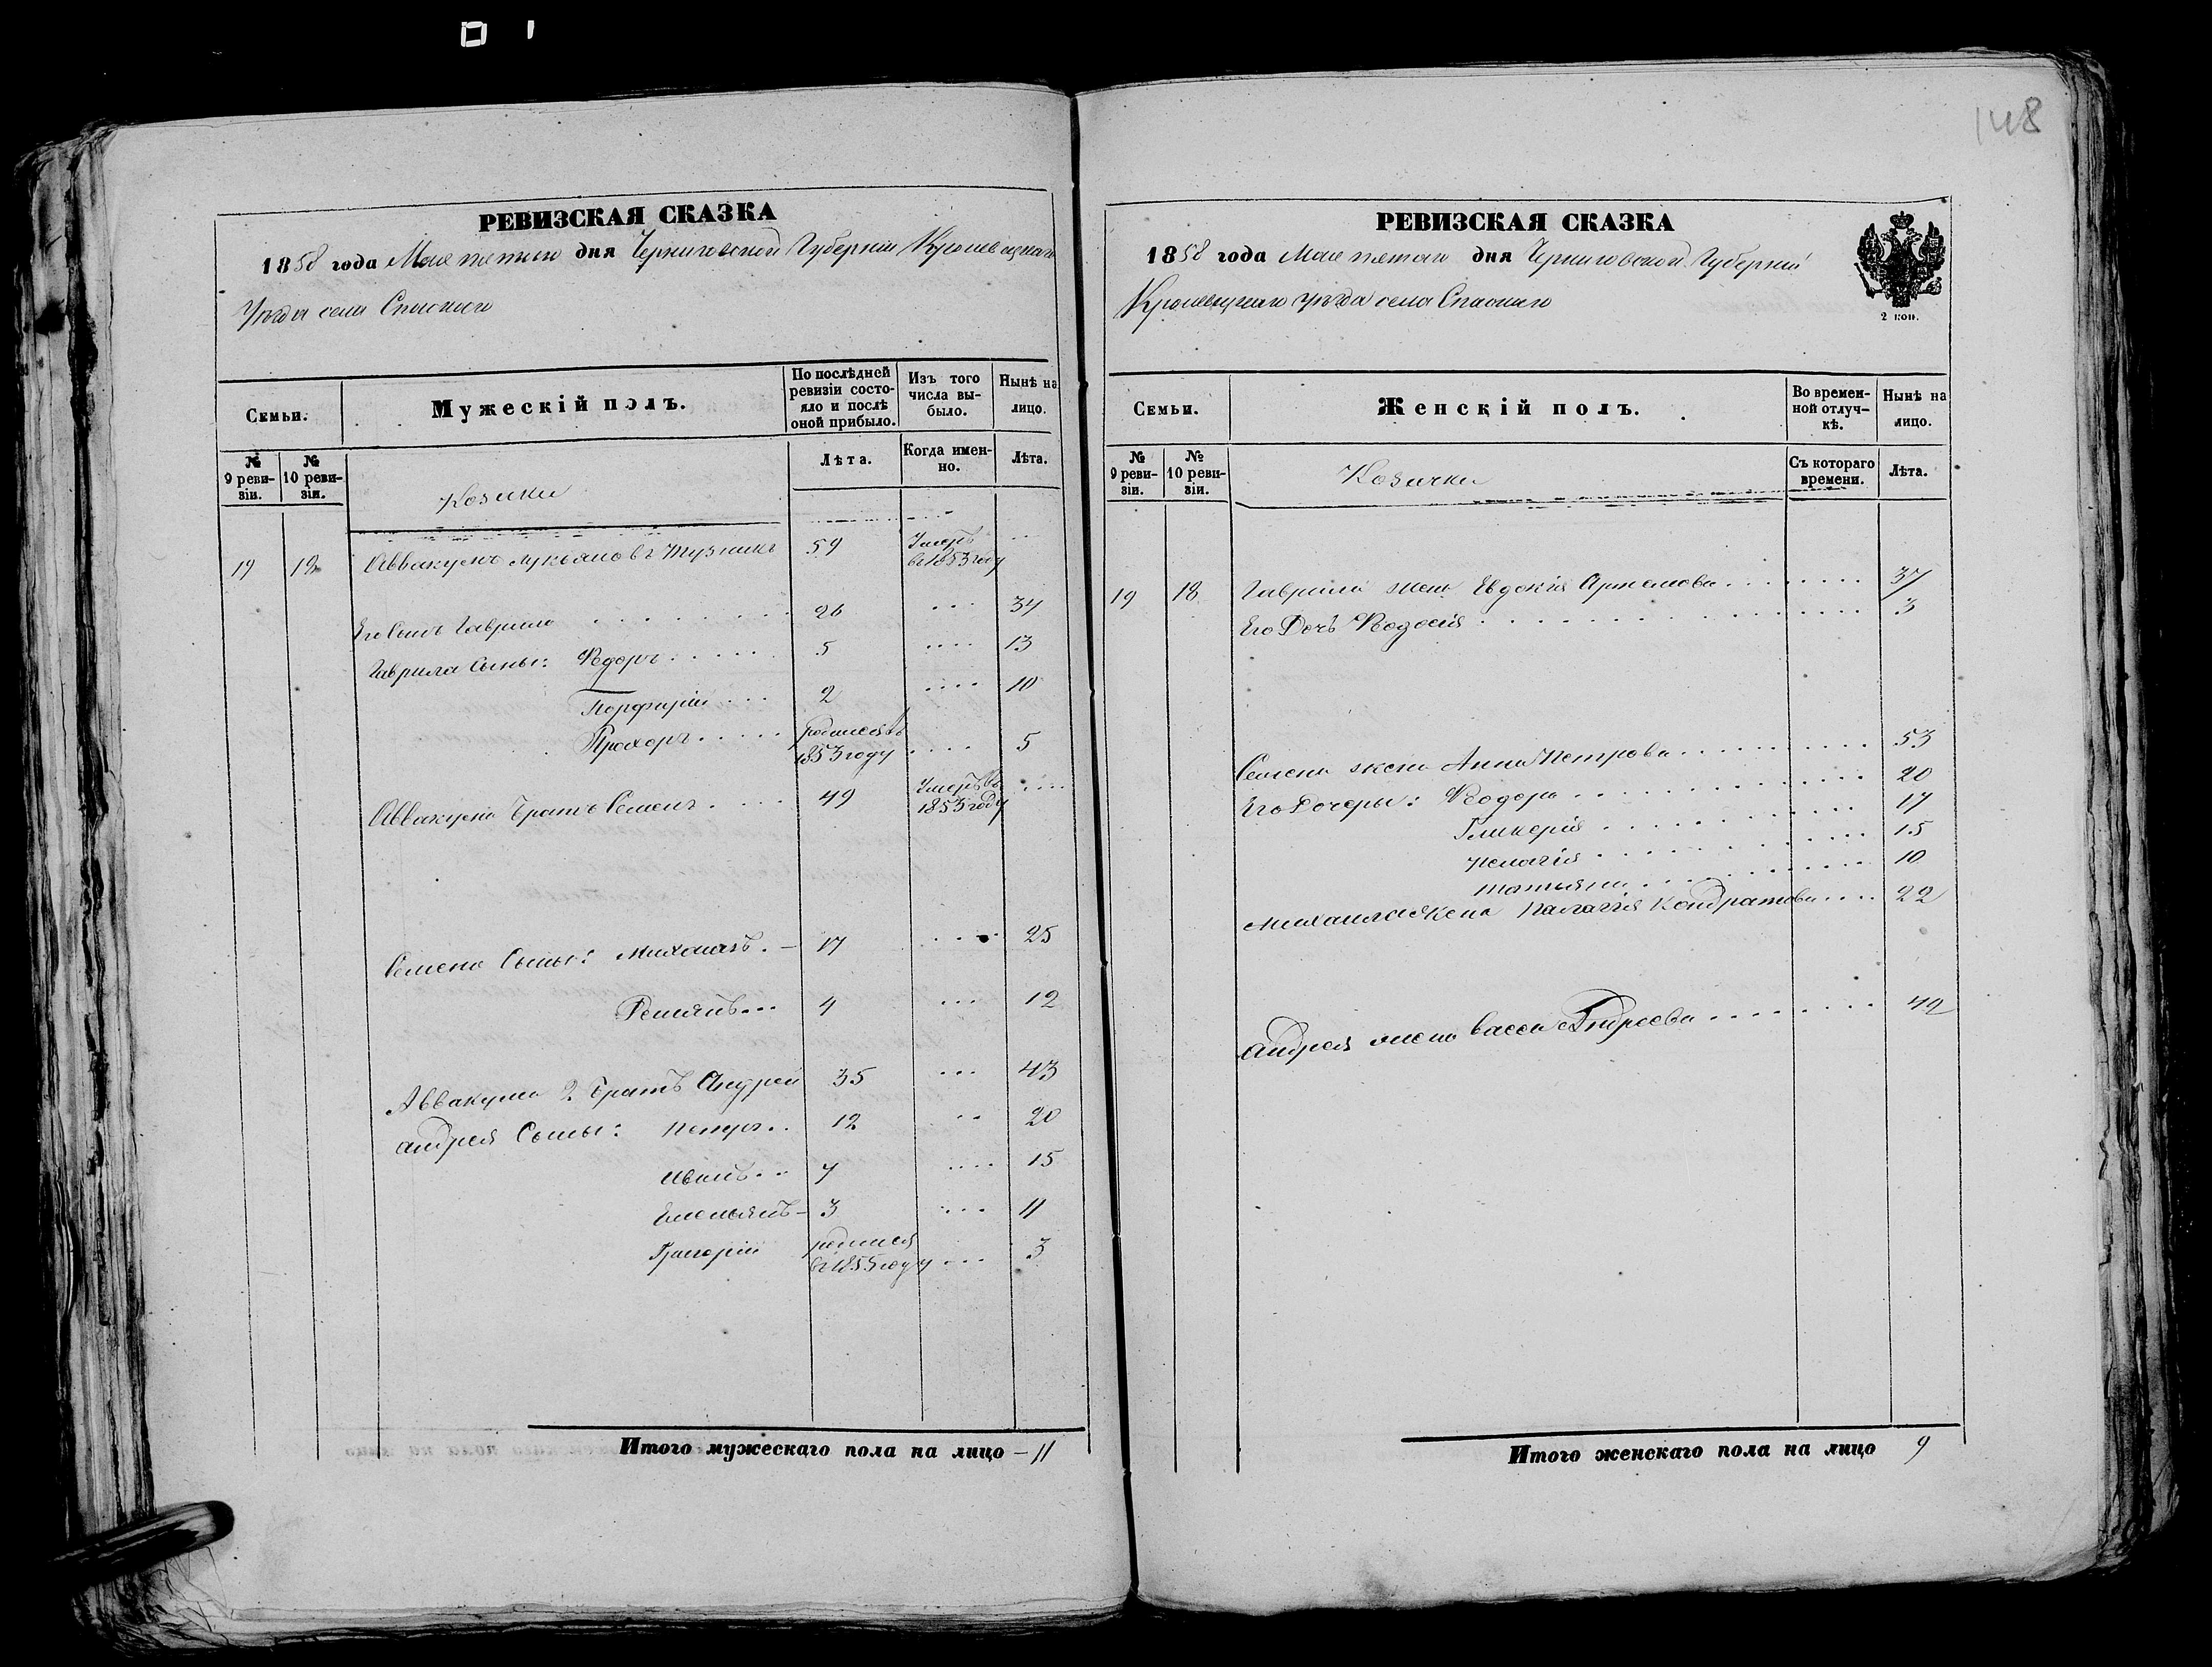 148
РЕВИЗСКАЯ СКАЗКА
1858 года Мая пятого дня Черниговской Губерніи Кролевецкаго
Уезда села Спаского
Семьи.
Мужескій полъ.
По послѣдней ревизіи состо-
яло и послѣ
оной прибыло.
Изъ того
числа вы-
было.
Нынѣ на
лицо.
№
9 реви-
зіи.
№
10 реви-
зіи.
Козаки
Лѣта.
Когда имен-
но.
Лѣта.
19 18 Аввакумъ Лукьяновъ 59 Умеръ
въ 1853 году
Его Сынъ Гаврило 26 34
Гаврила Сыны: Федоръ 5 13
Порфирій 2 10
Прохоръ родился въ
1853 году 5
Аввакума Братъ Семенъ 49 Умеръ въ
1853 году
Семена Сыны: Михаилъ 17 25
Демянъ 4 12
Аввакума 2 братъ Андрей 35 43
Андрея Сыны: Петръ 12 20
Иванъ 7 15
Емельянъ 3 11
Григорій родился
въ 1855 году 3
Итого мужескаго пола на лицо – 11
РЕВИЗСКАЯ СКАЗКА
1858 года Мая пятого дня Черниговской Губерніи
Кролевецкаго уезда села Спаского
2 коп.
Семьи.
Женскій полъ.
Во времен-
ной отлуч-
кѣ.
Нынѣ на
лицо.
№
9 реви-
зіи.
№
10 реви-
зіи.
Козачки
Съ котораго
времени.
Лѣта.
19 18 Гаврила жена Евдокія Артемова 37
Его Дочь Феодосія 3
Семена жена Анна Петрова 53
Его Дочеры: Феодора 20
Гликерія 17
Пелагія 15
Татьяна 10
Михаила жена Палагія Кондратова 22
Андрея жена Васса Андреева 42
Итого женскаго пола на лицо 9